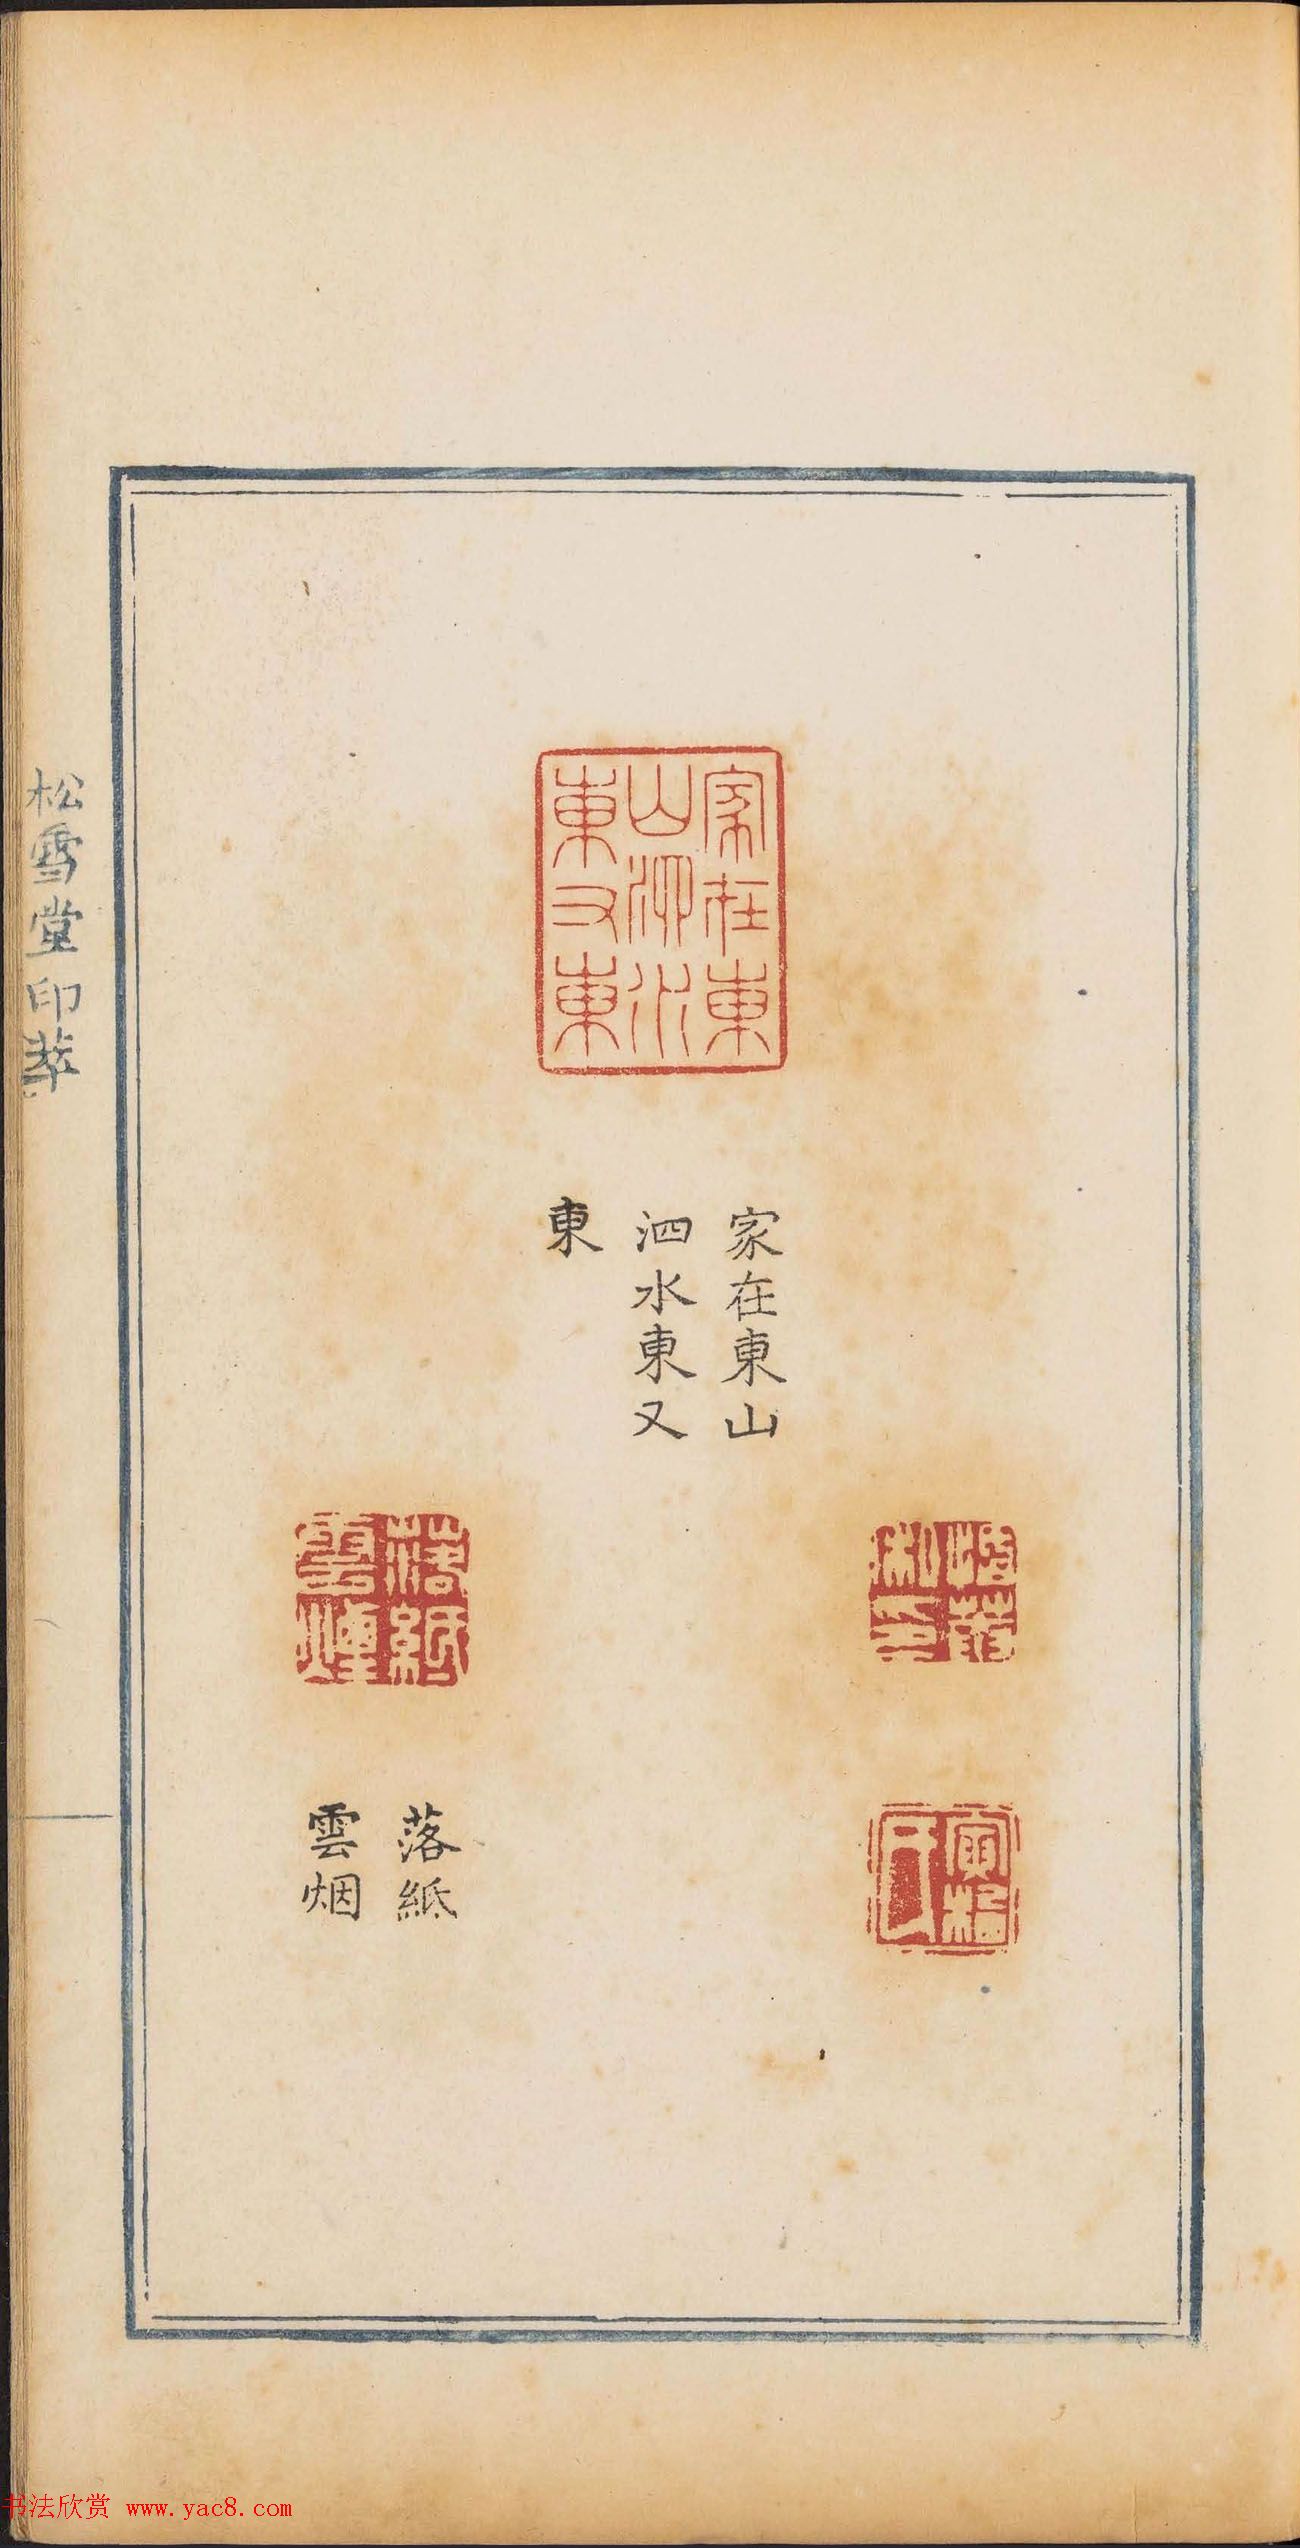 家在東
山泗水
東又東
家在東山
泗水東又
東
落紙
雲煙
落紙
雲烟
寅格
松雪堂印萃
书法欣赏 www.yac8.com